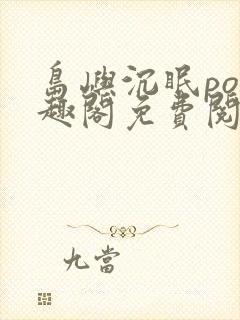 島嶼沉眠po
趣閣免費閱
九當